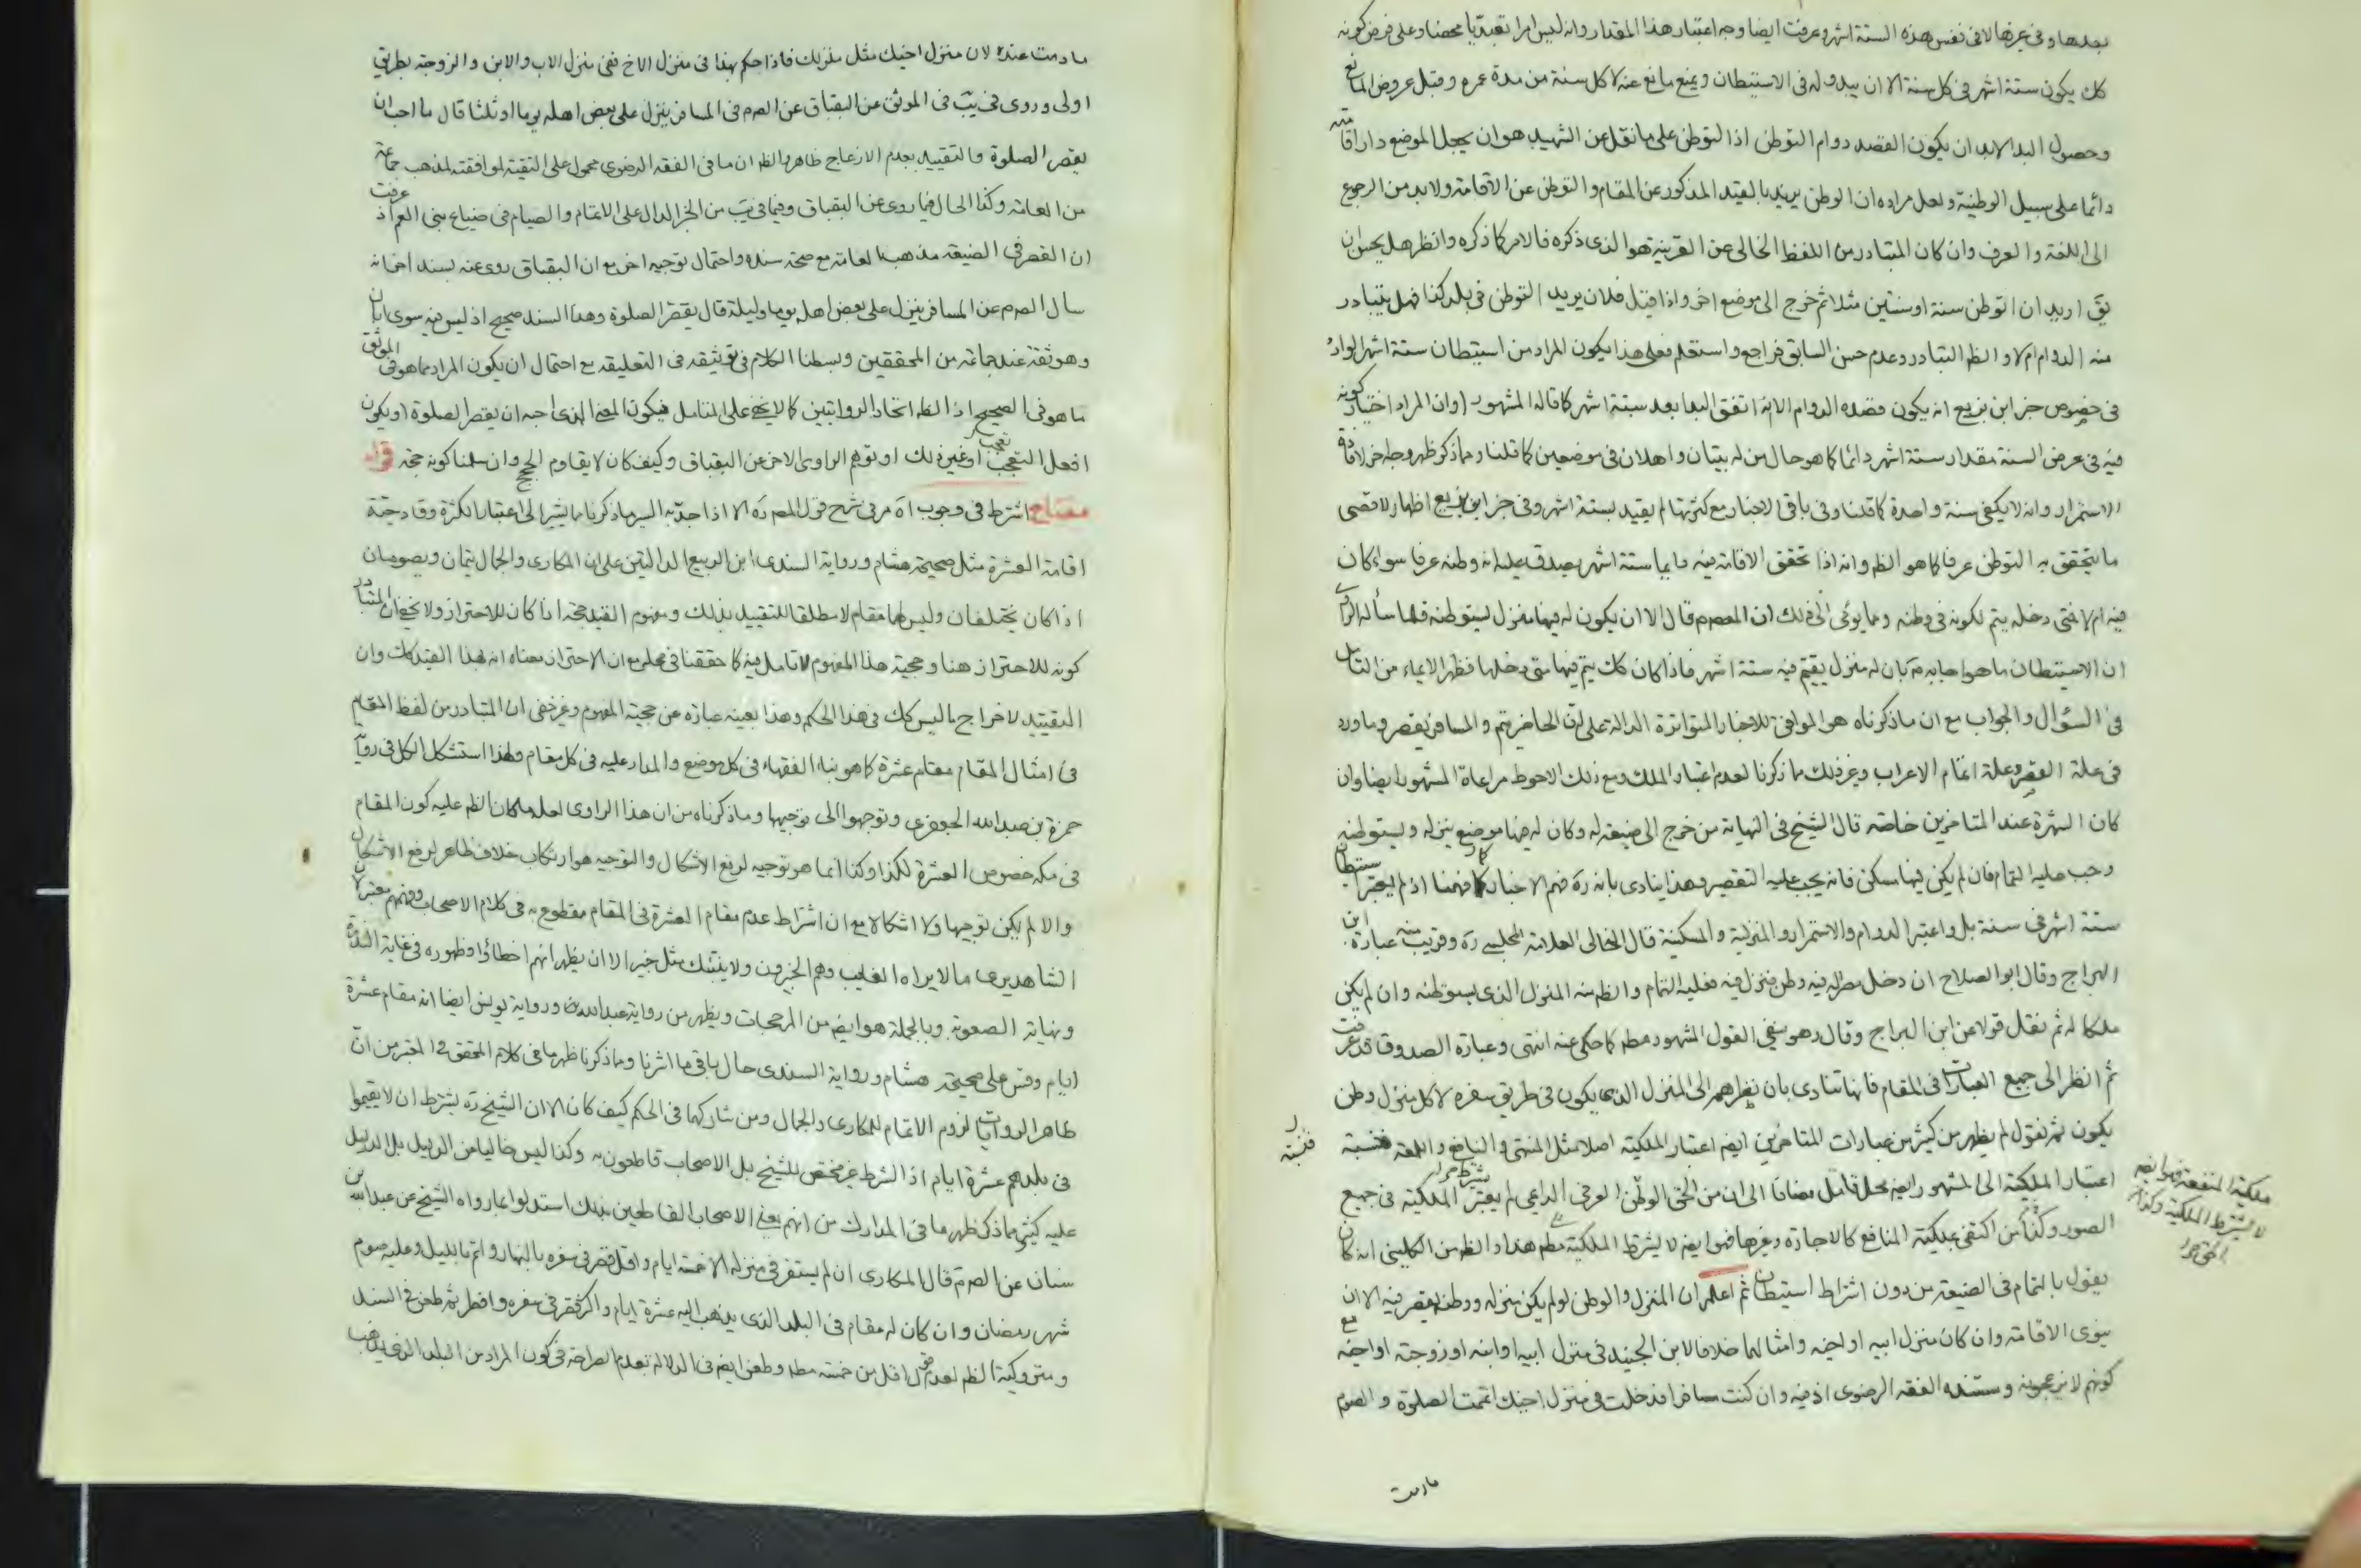 بعدها وفى غيرها لا فى نفس هذه الستة اشهر وعرفت ايضا وجه اعتبار هذا المقدار وانه ليس امرا تعبديا محضا وعلى فرض كونه
كك يكون ستة اشهر فى كل سنة الا ان يبدو له فى الاستيطان ويمنع مانع عنه لا كل سنة من مدة عمره وقبل عروض المانع
وحصول البدا لابد ان يكون القصد دوام التوطن اذ التوطن على ما نقل عن الشهيد هو ان يجعل الموضع دار اقامته
دائما على سبيل الوطنية ولعل مراده ان الوطن يريد بالقيد المذكور عن المقام والتوطن عن الاقامة ولابد من الرجوع
الى اللغة والعرف وان كان المتبادر من اللفظ الخالى عن القرينة هو الذى ذكره فالامر كما ذكره وانظر هل يحسن ان
يق اريد ان اتوطن سنة او سنتين مثلا ثم خرج الى موضع اخر واذا قيل فلان يريد التوطن فى بلد كذا فهل يتبادر
منه الدوام ام لا والظ التبادر وعدم حسن السابق فراجع واستعلم فعلى هذا يكون المراد من استيطان ستة اشهر الوارد
فى خصوص خبر ابن بزيع انه يكون قصده الدوام الا انه اتفق البدا بعد ستة اشهر كما قاله المشهور او ان المراد اختيار كونه
فيه فى عرض السنة مقدار ستة اشهر دائما كما هو حال من له بيتان واهلان فى موضعين كما قلنا ومما ذكر ظهر وجه اخر لافادة
الاستمرار وانه لا يكفى سنة واحدة كما قلنا وفى باقى الاخبار مع كثرتها لم يقيد بستة اشهر وفى خبر ابن بزيع اظهار لاقصى
ما يتحقق به التوطن عرفا كما هو الظ وانه اذا تحقق الاقامة فيه دايما ستة اشهر يصدق عليه انه وطنه عرفا سواء كان
فيه ام لا فمتى دخله يتم لكونه فى وطنه ومما يومى الى ذلك ان المعصوم قال الا ان يكون له فيها منزل يستوطنه فلما سأله الراوى
ان الاستيطان ما هو اجابه م بان له منزل يقيم فيه ستة اشهر فاذا كان كك يتم فيها متى دخلها فظهر الايماء من التامل
فى السؤال والجواب مع ان ما ذكرناه هو الموافق للاخبار المتواترة الدالة على ان الحاضر يتم والمسافر يقصر وما ورد
فى علة القصر وعلة اتمام الاعراب وغير ذلك مما ذكرنا لعدم اعتبار الملك ومع ذلك الاحوط مراعاة المشهور ايضا وان
كان الشهرة عند المتاخرين خاصة قال الشيخ فى النهاية من خرج الى ضيعة له وكان له فيها موضع ينزله ويستوطنه
وجب عليه التمام فان لم يكن فيها مسكن فانه يجب عليه التقصير وهذا ينادى بانه ره فهم الاخبار كما فهمنا اذ لم يعتبر استيطان
ستة اشهر فى سنة بل واعتبر الدوام والاستمرار والمنزلية والمسكنية قال الخالى العلامة المجلسى ره وقريب منه عبارة ابن
البراج وقال ابو الصلاح ان دخل مصرا له فيه وطن فنزل فيه فعليه التمام والظ منه المنزل الذى يستوطنه وان لم يكن
ملكا له ثم نقل قولا عن ابن البراج وقال وهو ينفى القول المشهور مطم كما حكى عنه انتهى وعبارة الصدوق قد عرفت
ثم انظر الى جميع العبارات فى المقام فانها تنادى بان نظرهم الى المنزل الذى يكون فى طريق سفره لا كل منزل وطن
يكون ثم نقول لم يظهر من كثير من عبارات المتاخرين ايضم اعتبار الملكية اصلا مثل المنتهى والنافع واللمعة فنسبة
اعتبار الملكية الى المشهور ايضم محل تامل مضافا الى ان من الحق الوطن العرفى الدايمى لم يعتبر الملكية فى جميع
الصور وكذا من اكتفى بملكية المنافع كالاجازه وغيرها فهو ايضم لا يشترط الملكية مطم هذا والظ من الكلينى انه كان
يقول بالتمام فى الضيعة من دون اشتراط استيطان ثم اعلم ان المنزل والوطن لو لم يكن منزله ووطنه يقصر فيه الا ان
ينوى الاقامة وان كان منزل ابيه او اخيه وامثالهما خلافا لابن الجنيد فى منزل ابيه او ابنه او زوجته او اخيه مع
كونهم لا يزعجونه ومستنده الفقه الرضوى اذ فيه وان كنت مسافرا فدخلت فى منزل اخيك اتممت الصلوة والصوم
مادمت
فنسبة
ملكية المنفعة فهو ايضم
لا يشترط الملكية وكذا
مادمت عنده لان منزل اخيك مثل منزلك فاذا حكم بهذا فى منزل الاخ ففى منزل الاب والابن والزوجة بطريق
اولى وروى فى يب فى الموثق عن البقباق عن الصم فى المسافر ينزل على بعض اهله يوما او ثلثا قال ما احب ان
يقصر الصلوة والتقييد بعدم الازعاج ظاهر والظ ان ما فى الفقه الرضوى محمول على التقية لموافقته لمذهب جماعة
من العامة وكذا الحال فيما روى عن البقباق وفيما فى يب من الخبر الدال على الاتمام والصيام فى ضياع بنى العم اذ عرفت
ان القصر فى الضيعة مذهب العامة مع صحة سنده واحتمال توجيه اخر مع ان البقباق روى عنه بسند اخر انه
سال الصم عن المسافر ينزل على بعض اهله يوما وليلة قال يقصر الصلوة وهذا السند صحيح اذ ليس فيه سوى ابان
وهو ثقة عند جماعة من المحققين وبسطنا الكلام فى توثيقه فى التعليقة مع احتمال ان يكون المراد مما هو فى الموثق
ما هو فى الصحيح اذ الظ اتحاد الروايتين كما لا يخفى على المتامل فيكون المعنى الذى احبه ان يقصر الصلوة او يكون
افعل التعجب او غير ذلك او توهم الراوى الاخر عن البقباق وكيف كان لا يقاوم الحجج وان سلمنا كونه حجة قوله
مفتاح اشترط فى وجوب اه مر فى شرح قول المصم ره الا اذا جد به السير ما ذكرنا مما يشير الى اعتبار الكثرة وقادحية
اقامة العشرة مثل صحيحة هشام ورواية السندى ابن الربيع الدالتين على ان المكارى والجمال يتمان ويصومان
اذا كان يختلفان وليس لهما مقام لا مطلقا للتقييد بذلك ومفهوم القيد حجة اذا كان للاحتراز ولا يخفى ان المتبادر
كونه للاحتراز هنا وحجية هذا المفهوم لا تامل فيه كما حققنا فى محله مع ان الاحتراز معناه انه لهذا القيد كك وان
التقييد لاخراج ما ليس كك فى هذا الحكم وهذا بعينه عبارة عن حجية المفهوم وغير خفى ان المتبادر من لفظ المقام
فى امثال المقام مقام عشرة كما هو بناء الفقهاء فى كل موضع والمدار عليه فى كل مقام ولهذا استشكل الكل فى رواية
حمزة بن عبد الله الجعفرى وتوجهوا الى توجيهها وما ذكرناه من ان هذا الراوى لعله ما كان الظ عليه كون المقام
فى مكة خصوص العشرة لكذا وكذا انما هو توجيه لرفع الاشكال والتوجيه هو ارتكاب خلاف ظاهر لرفع الاشكال
والا لم يكن توجيها ولا اشكالا مع ان اشتراط عدم مقام العشرة فى المقام مقطوع به فى كلام الاصحاب وفهمهم معتبر لان
الشاهد يرى ما لا يراه الغايب وهم الخبيرون ولا ينبئك مثل خبير الا ان يظهر انهم اخطاؤا وظهوره فى غاية الندرة
ونهاية الصعوبة وبالجملة هو ايضم من المرجحات ويظهر من رواية عبد الله ورواية يونس ايضا انه مقام عشرة
ايام وقس على صحيحة هشام ورواية السندى حال باقى ما اثرنا ومما ذكرنا ظهر ما فى كلام المحقق فى المعتبر من ان
ظاهر الروايات لزوم الاتمام للمكارى والجمال ومن شاركهما فى الحكم كيف كان الا ان الشيخ ره يشترط ان لا يقيموا
فى بلدهم عشرة ايام اذ الشرط غير مختص للشيخ بل الاصحاب قاطعون به وكذا ليس خاليا من الدليل بل الدليل
عليه كثير ومما ذكر ظهر ما فى المدارك من انهم يعنى الاصحاب القاطعين بذلك استدلوا بما رواه الشيخ عن عبد الله بن
سنان عن الصم قال المكارى ان لم يستقر فى منزله الا خمسة ايام واقل قصر فى سفره بالنهار واتم بالليل وعليه صوم
شهر رمضان وان كان له مقام فى البلد الذى يذهب اليه عشرة ايام واكثر قصر فى سفره وافطر ثم طعن فى السند
ومتروكية الظ لعدم قول اقل من خمسة مطم وطعن ايضم فى الدلالة بعدم الصراحة فى كون المراد من البلد الذى يذهب